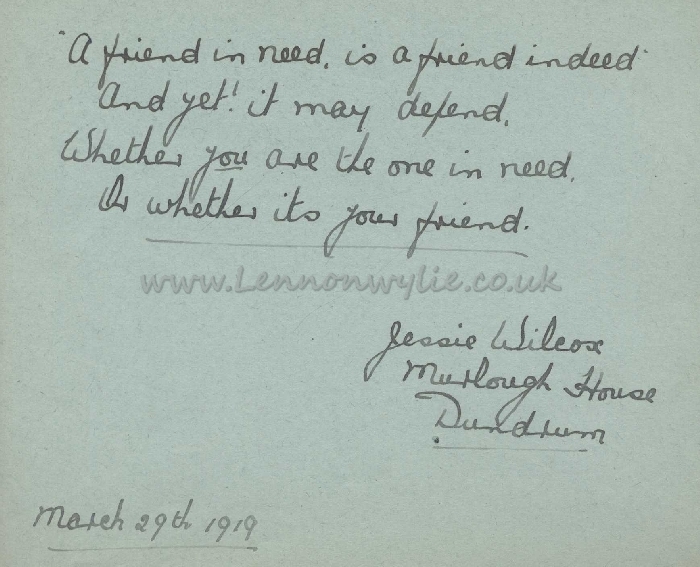 "A friend in need, is a friend indeed"
And yet! it may depend,
Whether you are the one in need,
Or whether its your friend.
www.Lennonwylie.co.uk
Jessie Wilcox
Murlough House
Dundrum
March 29th 1919